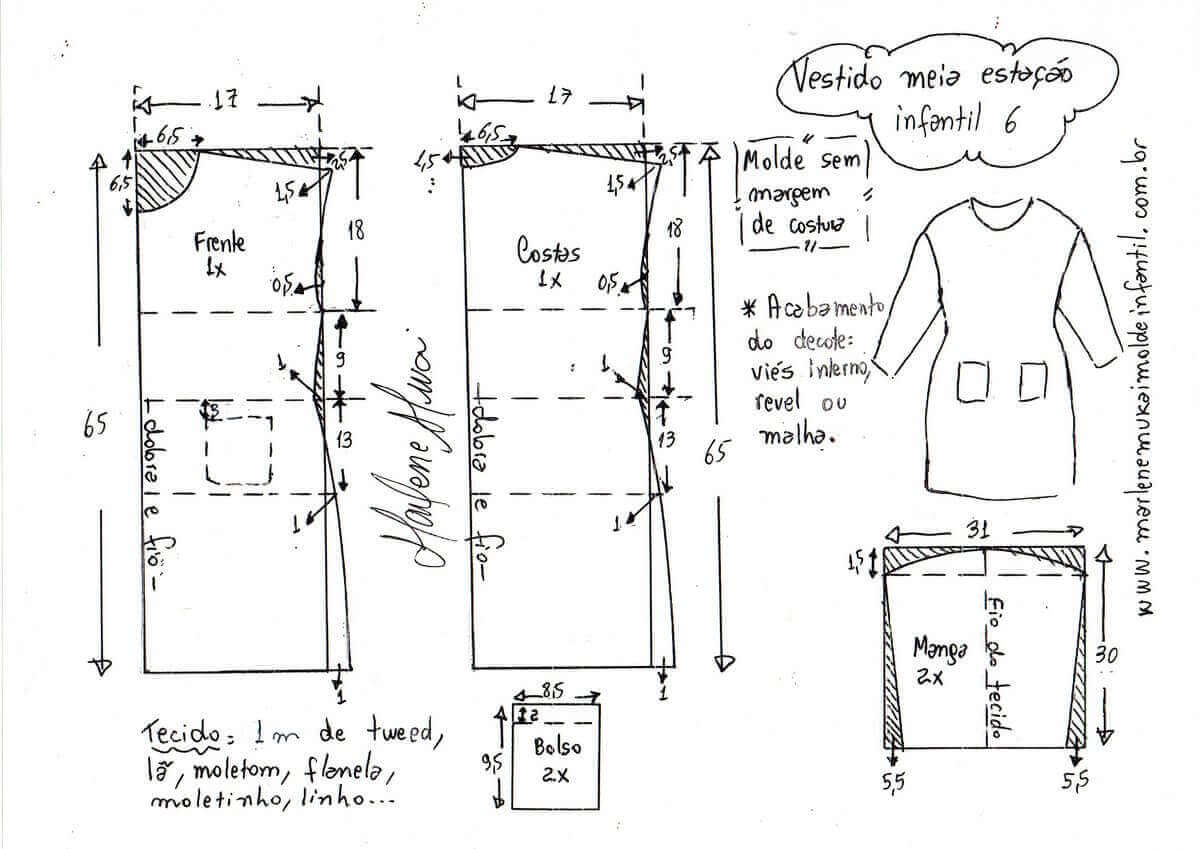 Vestido meia estação
infantil 6
Molde sem
margem
de costura
* Acabamento
do decote:
viés interno,
revel ou
malha.
www.marlenemukaimoldeinfantil.com.br
17
6,5
6,5
2,5
1,5
18
Frente
1x
0,5
9
1
65
3
13
dobra e fio
1
1
17
6,5
1,5
2,5
1,5
18
Costas
1x
0,5
9
1
65
13
dobra e fio
1
1
31
1,5
Fio do tecido
Manga
2x
30
5,5
5,5
8,5
2
9,5
Bolso
2x
Tecido: 1m de tweed,
lã, moletom, flanela,
moletinho, linho...